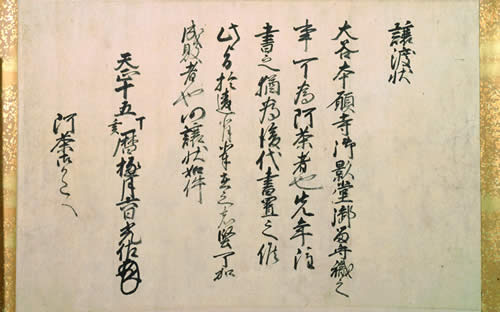 讓渡状
大谷本願寺御影堂御留守職之
事可為阿茶者也先年注
書之猶為後代書置之候
此旨於違背輩在之者堅可加
成敗者也仍讓状如件
天正十五丁亥暦極月六日光佐
阿茶御かたへ